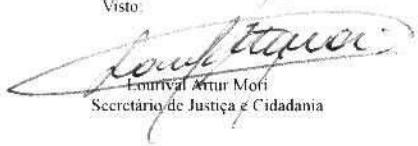 Visto:
Lourival Artur Mori
Secretário de Justiça e Cidadania